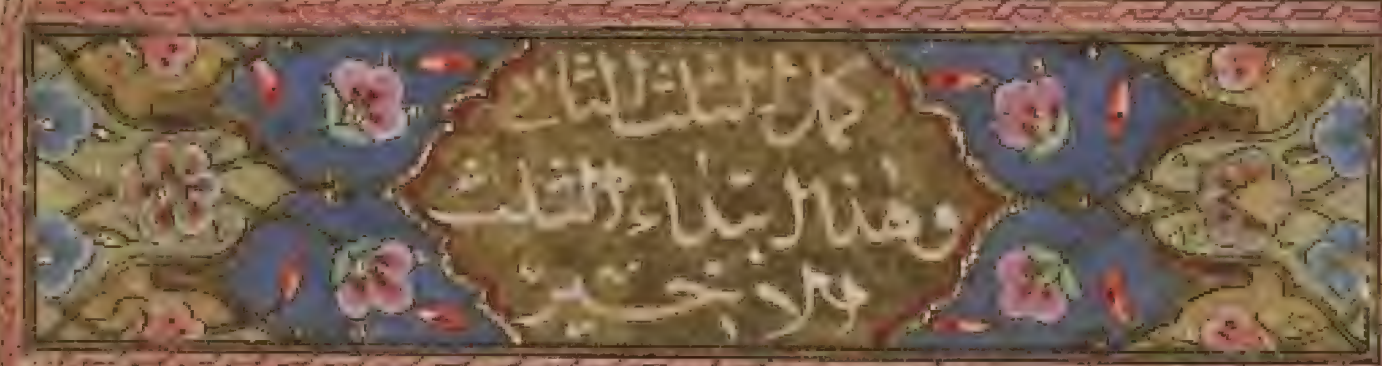 كمل الثلث الثاني
وهذا ابتداء الثلث
والاخير